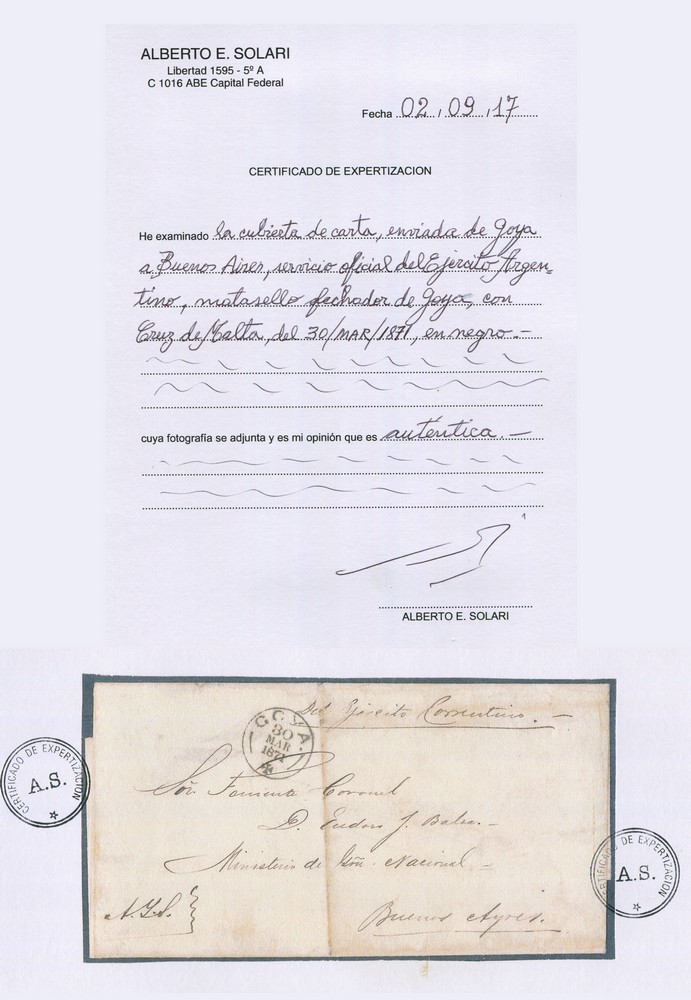 ALBERTO E. SOLARI
Libertad 1595 - 5º A
C 1016 ABE Capital Federal
Fecha 02, 09, 17
CERTIFICADO DE EXPERTIZACION
He examinado la cubierta de carta, enviada de Goya
a Buenos Aires, servicio oficial del Ejército Argen=
tino, matasello fechador de Goya, con
Cruz de Malta, del 30/MAR/1871, en negro.-
cuya fotografía se adjunta y es mi opinión que es auténtica.-
ALBERTO E. SOLARI
Del Ejército Correntino.-
GOYA.
30
MAR
1871
Coronel
D. Eudoro J. Balsa.-
Ministerio de Nacional
Buenos Ayres.
CERTIFICADO DE EXPERTIZACION
A.S.
CERTIFICADO DE EXPERTIZACION
A.S.